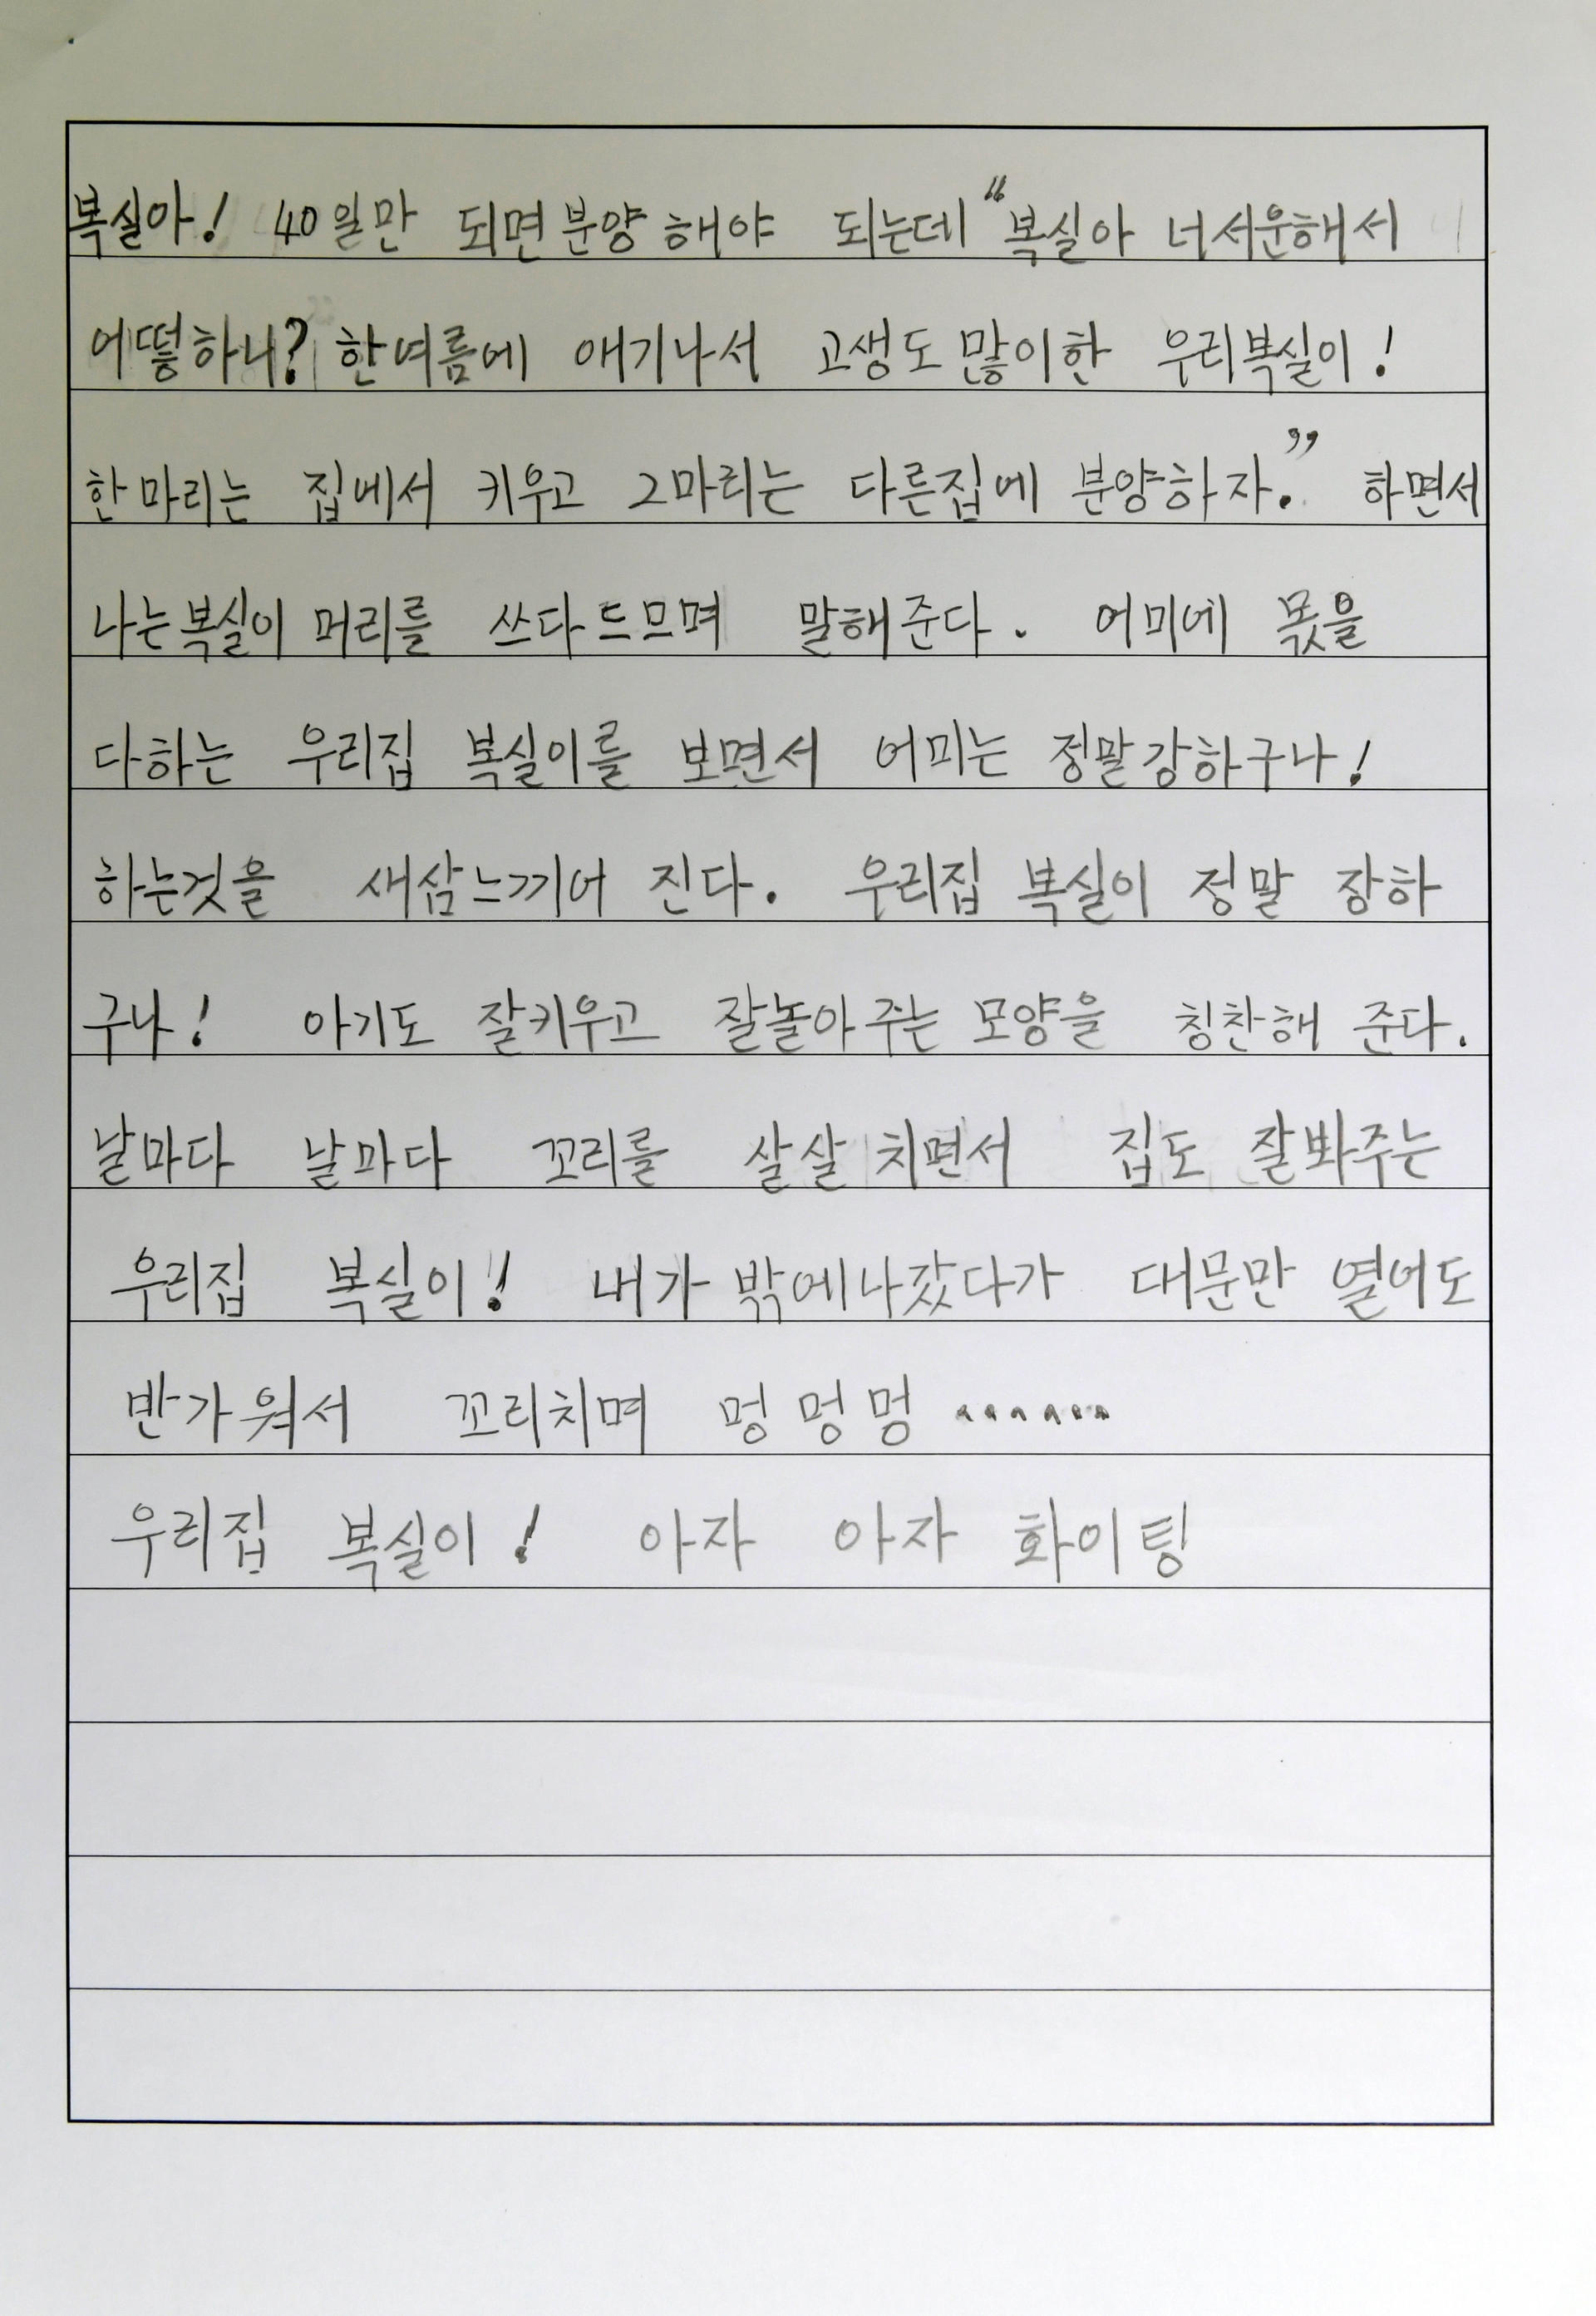 복실아! 40일만 되면분양해야 되는데 "복실아 너서운해서
어떻하니? 한여름에 애기나서 고생도많이한 우리복실이!
한마리는 집에서 키우고 2마리는 다른집에 분양하자." 하면서
나는복실이머리를 쓰다드므며 말해준다. 어미에 몫을
다하는 우리집 복실이를 보면서 어미는 정말강하구나!
하는것을 새삼느끼어 진다. 우리집 복실이 정말 장하
구나! 아기도 잘키우고 잘놀아주는 모양을 칭찬해 준다.
날마다 날마다 꼬리를 살살치면서 집도 잘봐주는
우리집 복실이! 내가밖에나갔다가 대문만 열어도
반가워서 꼬리치며 멍멍멍 .......
우리집 복실이! 아자 아자 화이팅